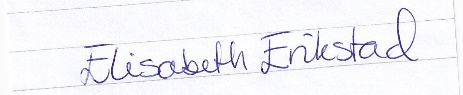 Elisabeth Erikstad